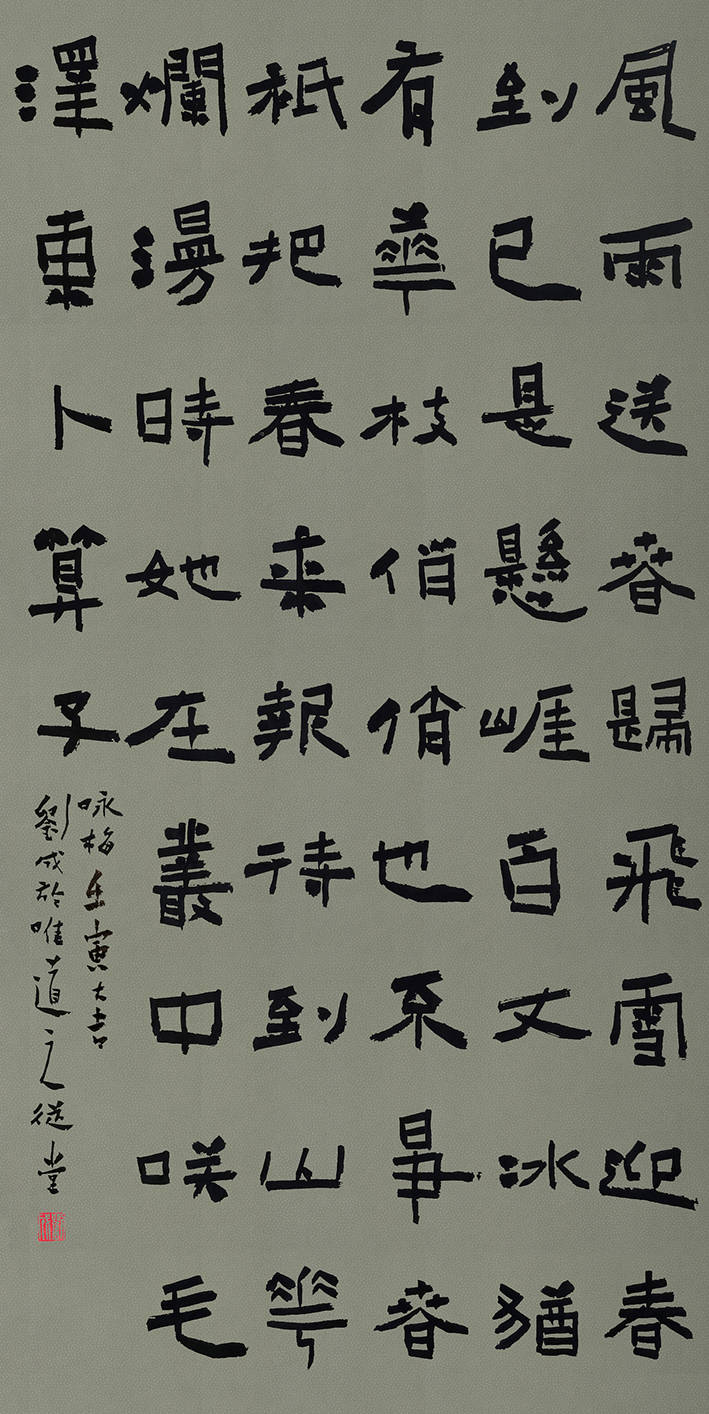 風雨送春歸飛雪迎春
到已是懸崖百丈冰猶
有華枝俏俏也不爭春
祇把春來報待到山花
爛漫時她在叢中咲毛
澤東卜算子
咏梅壬寅大吉
劉成於唯道之從堂